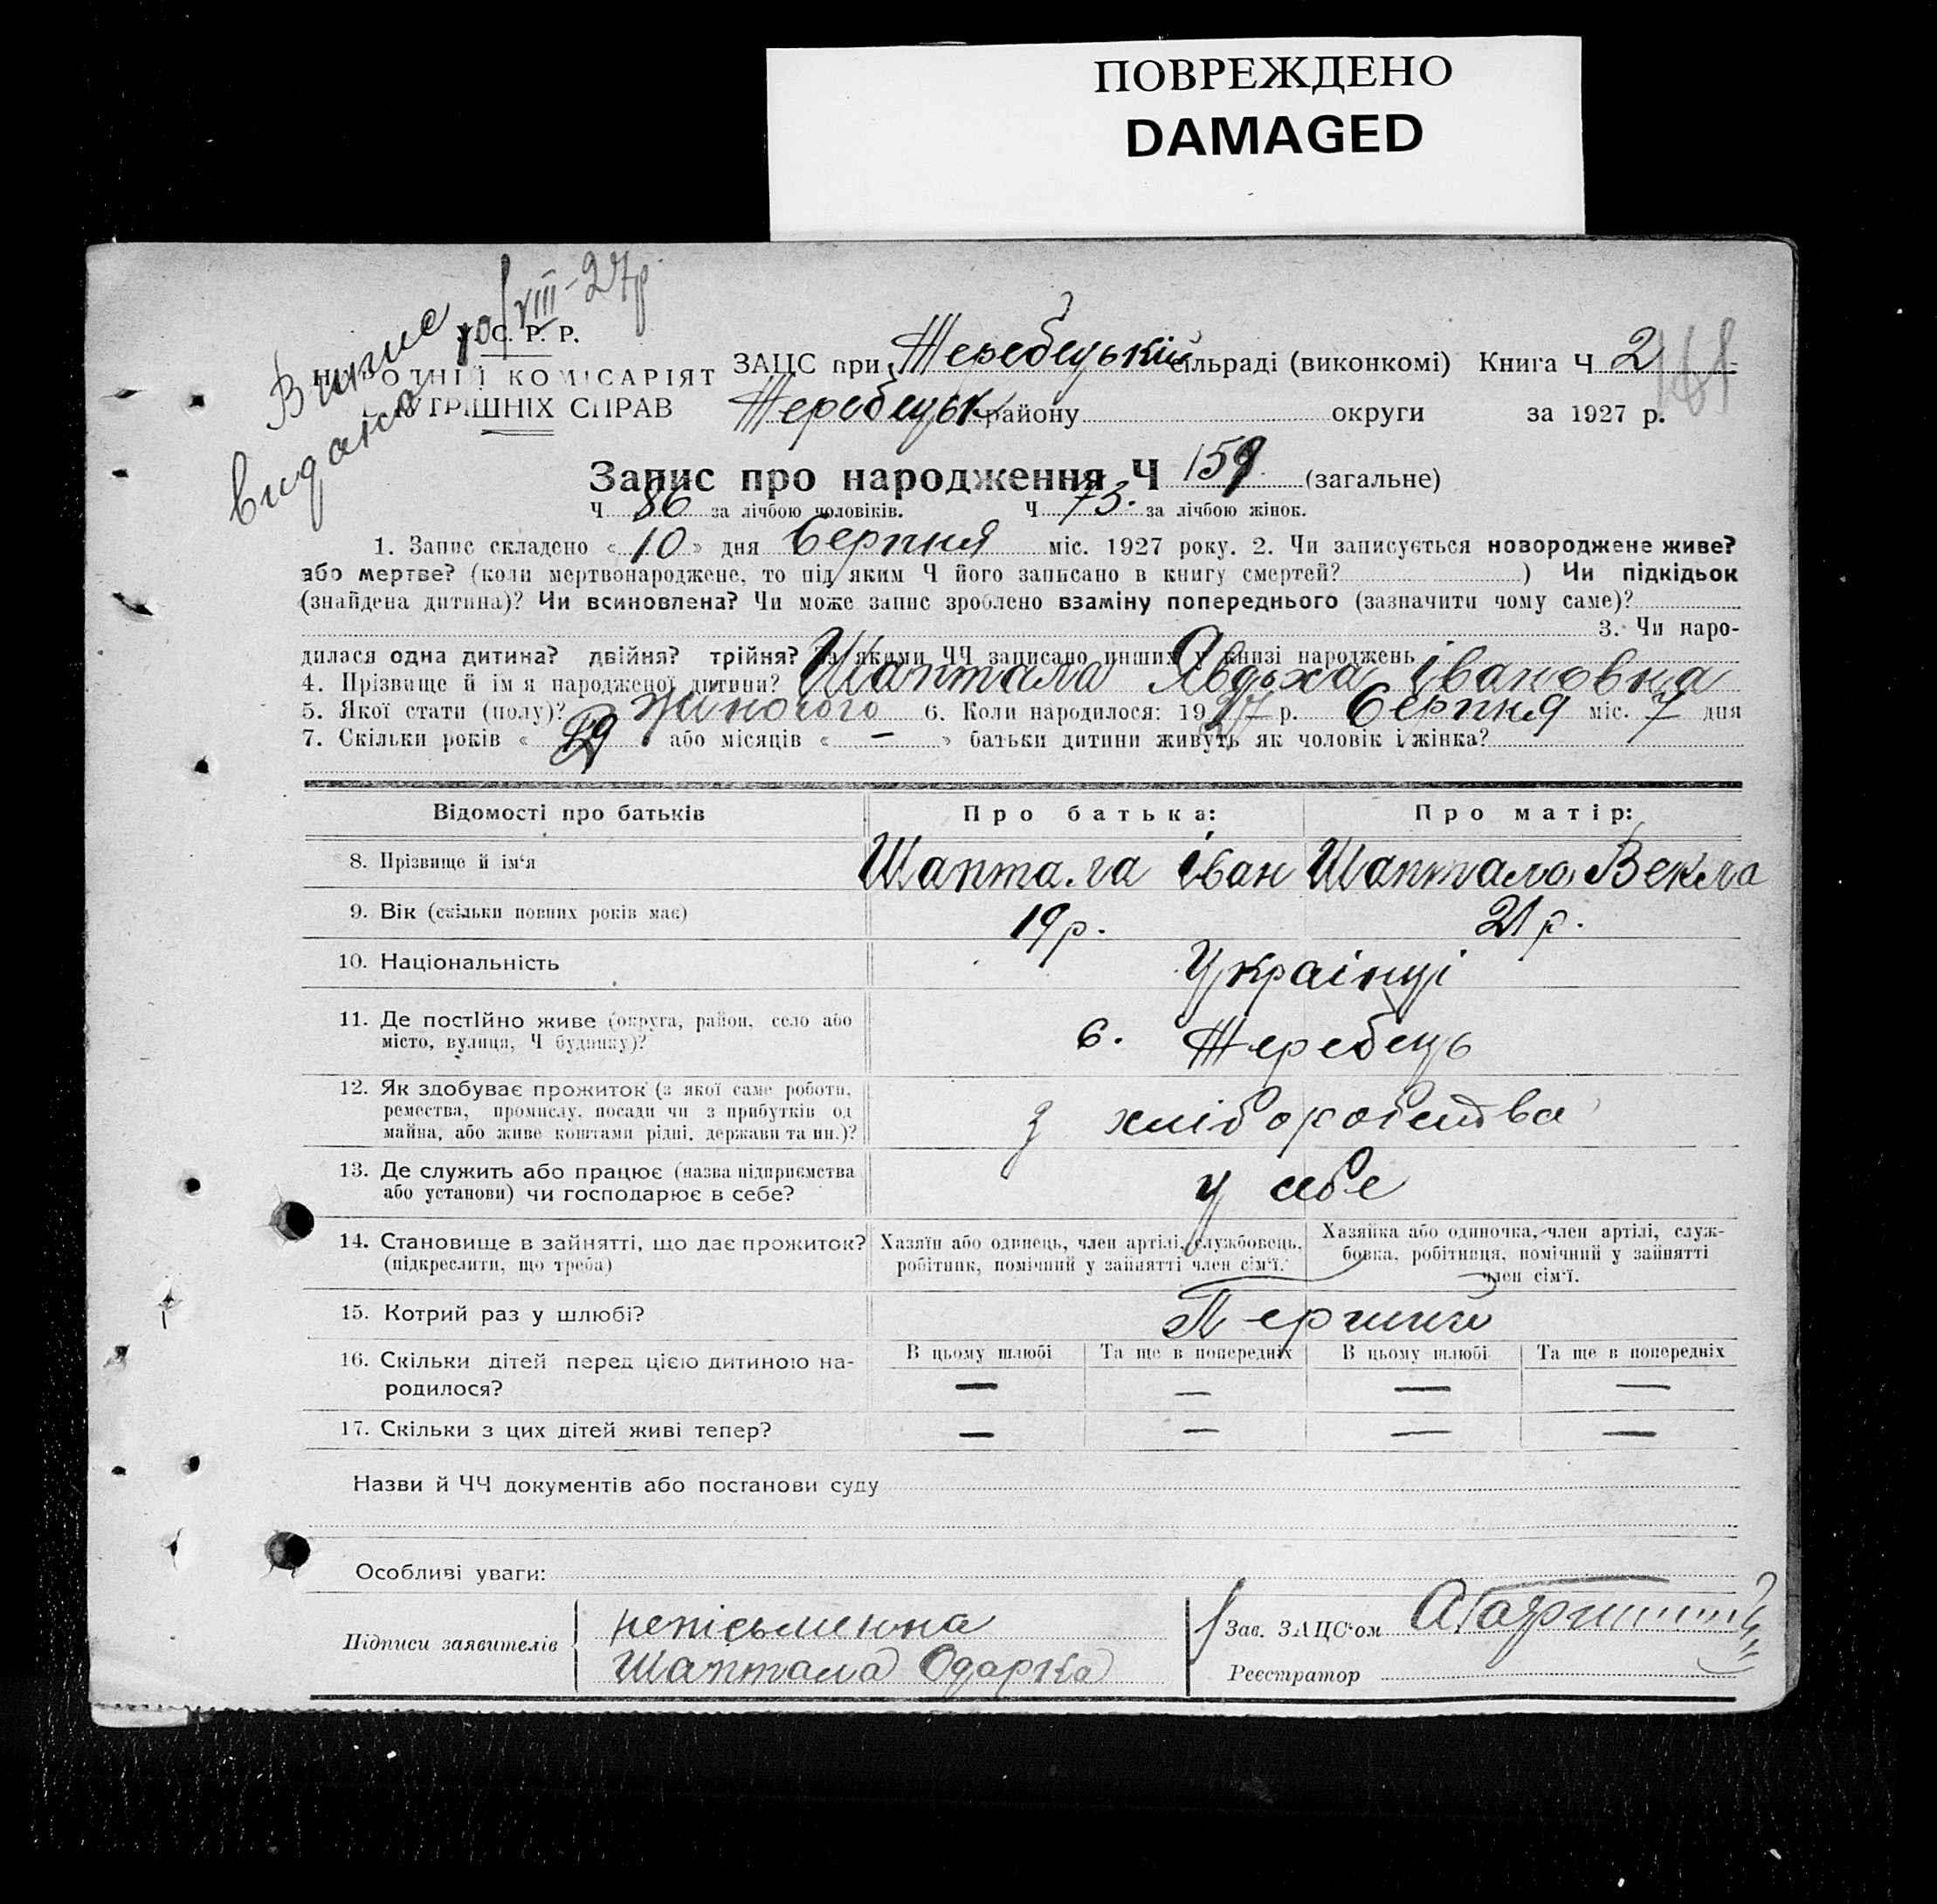 ПОВРЕЖДЕНО
DAMAGED
Випис 10/VIII-27р.
видано
У.С.Р.Р.
НАРОДНІЙ КОМІСАРІЯТ
ВНУТРІШНІХ СПРАВ
ЗАЦС при Жеребецькій сільраді (виконкомі) Книга Ч 2
Жеребецьк району округи за 1927 р.
Запис про народження Ч 159 (загальне)
Ч 86 за лічбою чоловіків. Ч 73. за лічбою жінок.
1. Запис складено « 10 » дня Серпня міс. 1927 року. 2. Чи записується новороджене живе?
або мертве? (коли мертвонароджене, то під яким Ч його записано в книгу смертей? ) Чи підкідьок
(знайдена дитина)? Чи всиновлена? Чи може запис зроблено взаміну попереднього (зазначити чому саме)?
3. Чи наро-
дилася одна дитина? двійня? трійня? За якими ЧЧ записано инших у книзі народжень
4. Прізвище й ім я народженої дитини? Шаптала Явдоха Івановна
5. Якої стати (полу)? Жіночого 6. Коли народилося: 1927 р. Серпня міс. 7 дня
7. Скільки років « » або місяців « — » батьки дитини живуть як чоловік і жінка?
Відомості про батьків Про батька: Про матір:
8. Прізвище й ім‘я Шаптала Іван Шаптала Векла
9. Вік (скільки повних років має) 19 р. 21 р.
10. Національність Українці
11. Де постійно живе (округа, район, село або
місто, вулиця, Ч будинку)? с. Жеребець
12. Як здобуває прожиток (з якої саме роботи,
ремества, промислу, посади чи з прибутків од
майна, або живе коштами рідні, держави та ин.)? з хліборобства
13. Де служить або працює (назва підприємства
або установи) чи господарює в себе? у себе
14. Становище в зайнятті, що дає прожиток?
(підкреслити, що треба)
Хазяїн або одинець, член артілі, службовець,
робітник, помічний у зайнятті член сім‘ї.
Хазяйка або одиночка, член артілі, служ-
бовка, робітниця, помічний у зайнятті
член сім‘ї.
15. Котрий раз у шлюбі? Перший
16. Скільки дітей перед цією дитиною на-
родилося?
В цьому шлюбі Та ще в попередніх В цьому шлюбі Та ще в попередніх
— — — —
17. Скільки з цих дітей живі тепер? — — — —
Назви й ЧЧ документів або постанови суду
Особливі уваги:
Підписи заявителів
непісьменна
Шаптала Одарка
Зав. ЗАЦС‘ом
Реєстратор